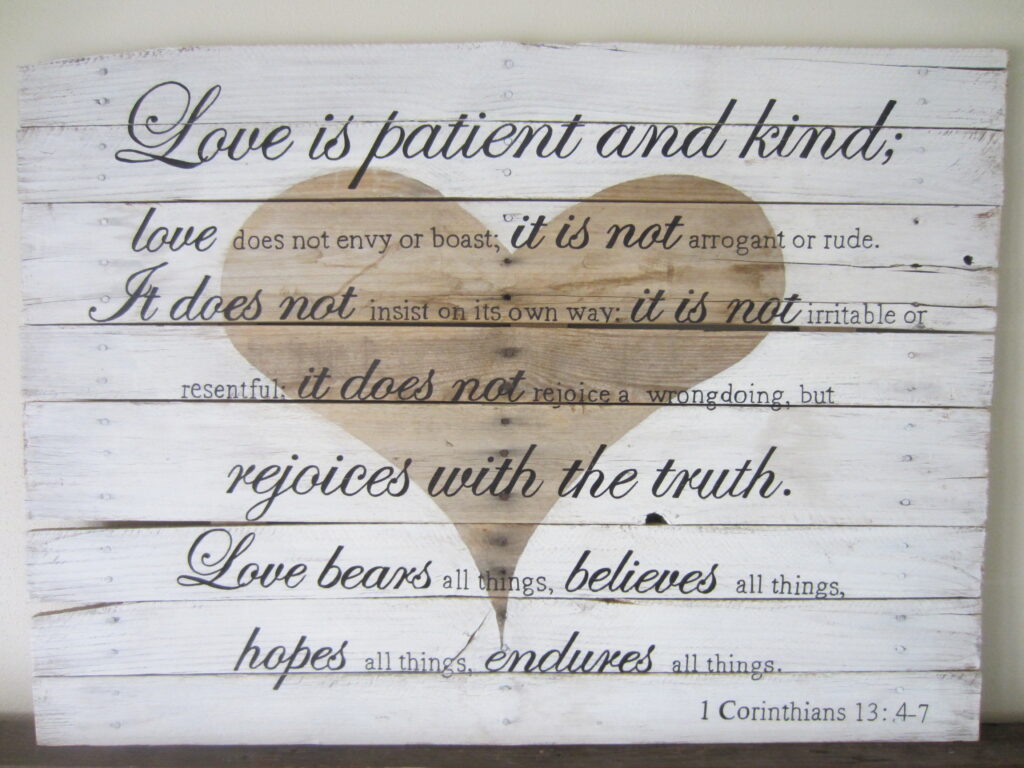 Love is patient and kind;
love does not envy or boast; it is not arrogant or rude.
It does not insist on its own way: it is not irritable or
resentful; it does not rejoice a wrongdoing, but
rejoices with the truth.
Love bears all things, believes all things,
hopes all things, endures all things.
1 Corinthians 13:4-7